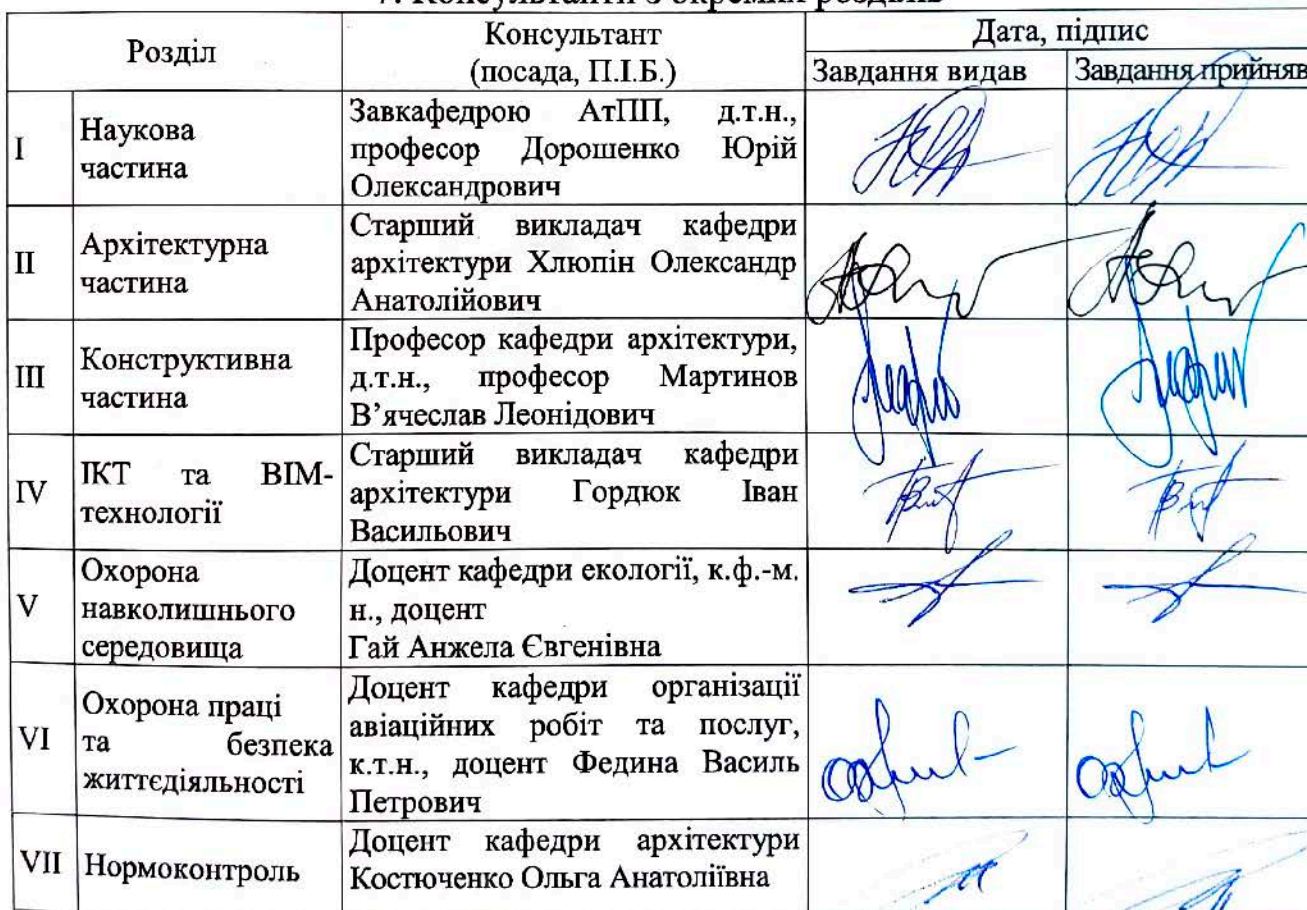 7. Консультанти з окремих розділів
Розділ
Консультант
(посада, П.І.Б.)
Дата, підпис
Завдання видав
Завдання прийняв
I
Наукова
частина
Завкафедрою АтПП, д.т.н.,
професор Дорошенко Юрій
Олександрович
II
Архітектурна
частина
Старший викладач кафедри
архітектури Хлюпін Олександр
Анатолійович
III
Конструктивна
частина
Професор кафедри архітектури,
д.т.н., професор Мартинов
В’ячеслав Леонідович
IV
ІКТ та BIM-
технології
Старший викладач кафедри
архітектури Гордюк Іван
Васильович
V
Охорона
навколишнього
середовища
Доцент кафедри екології, к.ф.-м.
н., доцент
Гай Анжела Євгенівна
VI
Охорона праці
та безпека
життєдіяльності
Доцент кафедри організації
авіаційних робіт та послуг,
к.т.н., доцент Федина Василь
Петрович
VII
Нормоконтроль
Доцент кафедри архітектури
Костюченко Ольга Анатоліївна